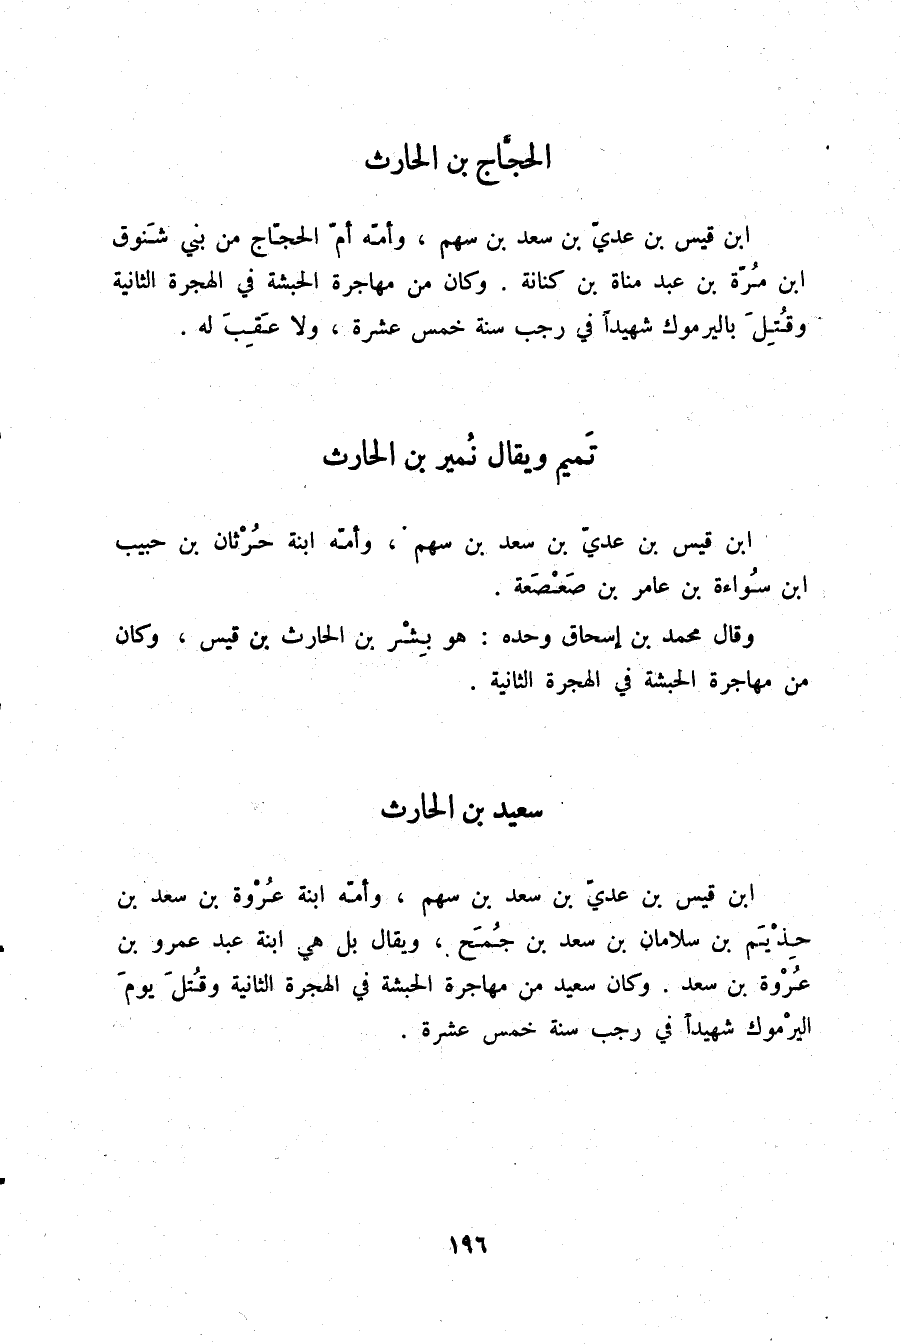 الحجَّاج بن الحارث
ابن قيس بن عديّ بن سعد بن سهم ، وأمّه أمّ الحجّاج من بني شَنوق
ابن مُرّة بن عبد مناة بن كنانة . وكان من مهاجرة الحبشة في الهجرة الثانية
وقُتِلَ باليرموك شهيداً في رجب سنة خمس عشرة ، ولا عَقِبَ له .
تَميم ويقال نُمير بن الحارث
ابن قيس بن عديّ بن سعد بن سهم ، وأمّه ابنة حُرْثان بن حبيب
ابن سُواءة بن عامر بن صَعْصَعة .
وقال محمد بن إسحاق وحده : هو بِشْر بن الحارث بن قيس ، وكان
من مهاجرة الحبشة في الهجرة الثانية .
سعيد بن الحارث
ابن قيس بن عديّ بن سعد بن سهم ، وأمّه ابنة عُرْوة بن سعد بن
حِذْيَم بن سلامان بن سعد بن جُمَح ، ويقال بل هي ابنة عبد عمرو بن
عُرْوة بن سعد . وكان سعيد من مهاجرة الحبشة في الهجرة الثانية وقُتلَ يومَ
اليرْموك شهيداً في رجب سنة خمس عشرة .
١٩٦